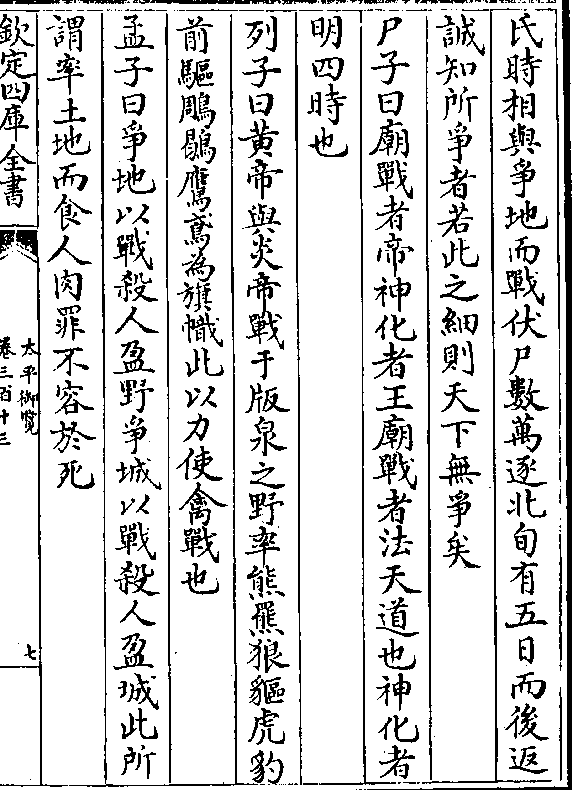 氏時相與爭地而戰伏尸數萬逐北旬有五日而後返
誠知所爭者若此之細則天下無爭矣
尸子曰廟戰者帝神化者王廟戰者法天道也神化者
明四時也
列子曰黃帝與炎帝戰于版泉之野率熊羆狼貙虎豹
前驅鵰鶡鷹鳶為旗幟此以力使禽戰也
孟子曰爭地以戰殺人盈野爭城以戰殺人盈城此所
謂率土地而食人肉罪不容於死
欽定四庫全書
太平御覽
卷三百十三
七